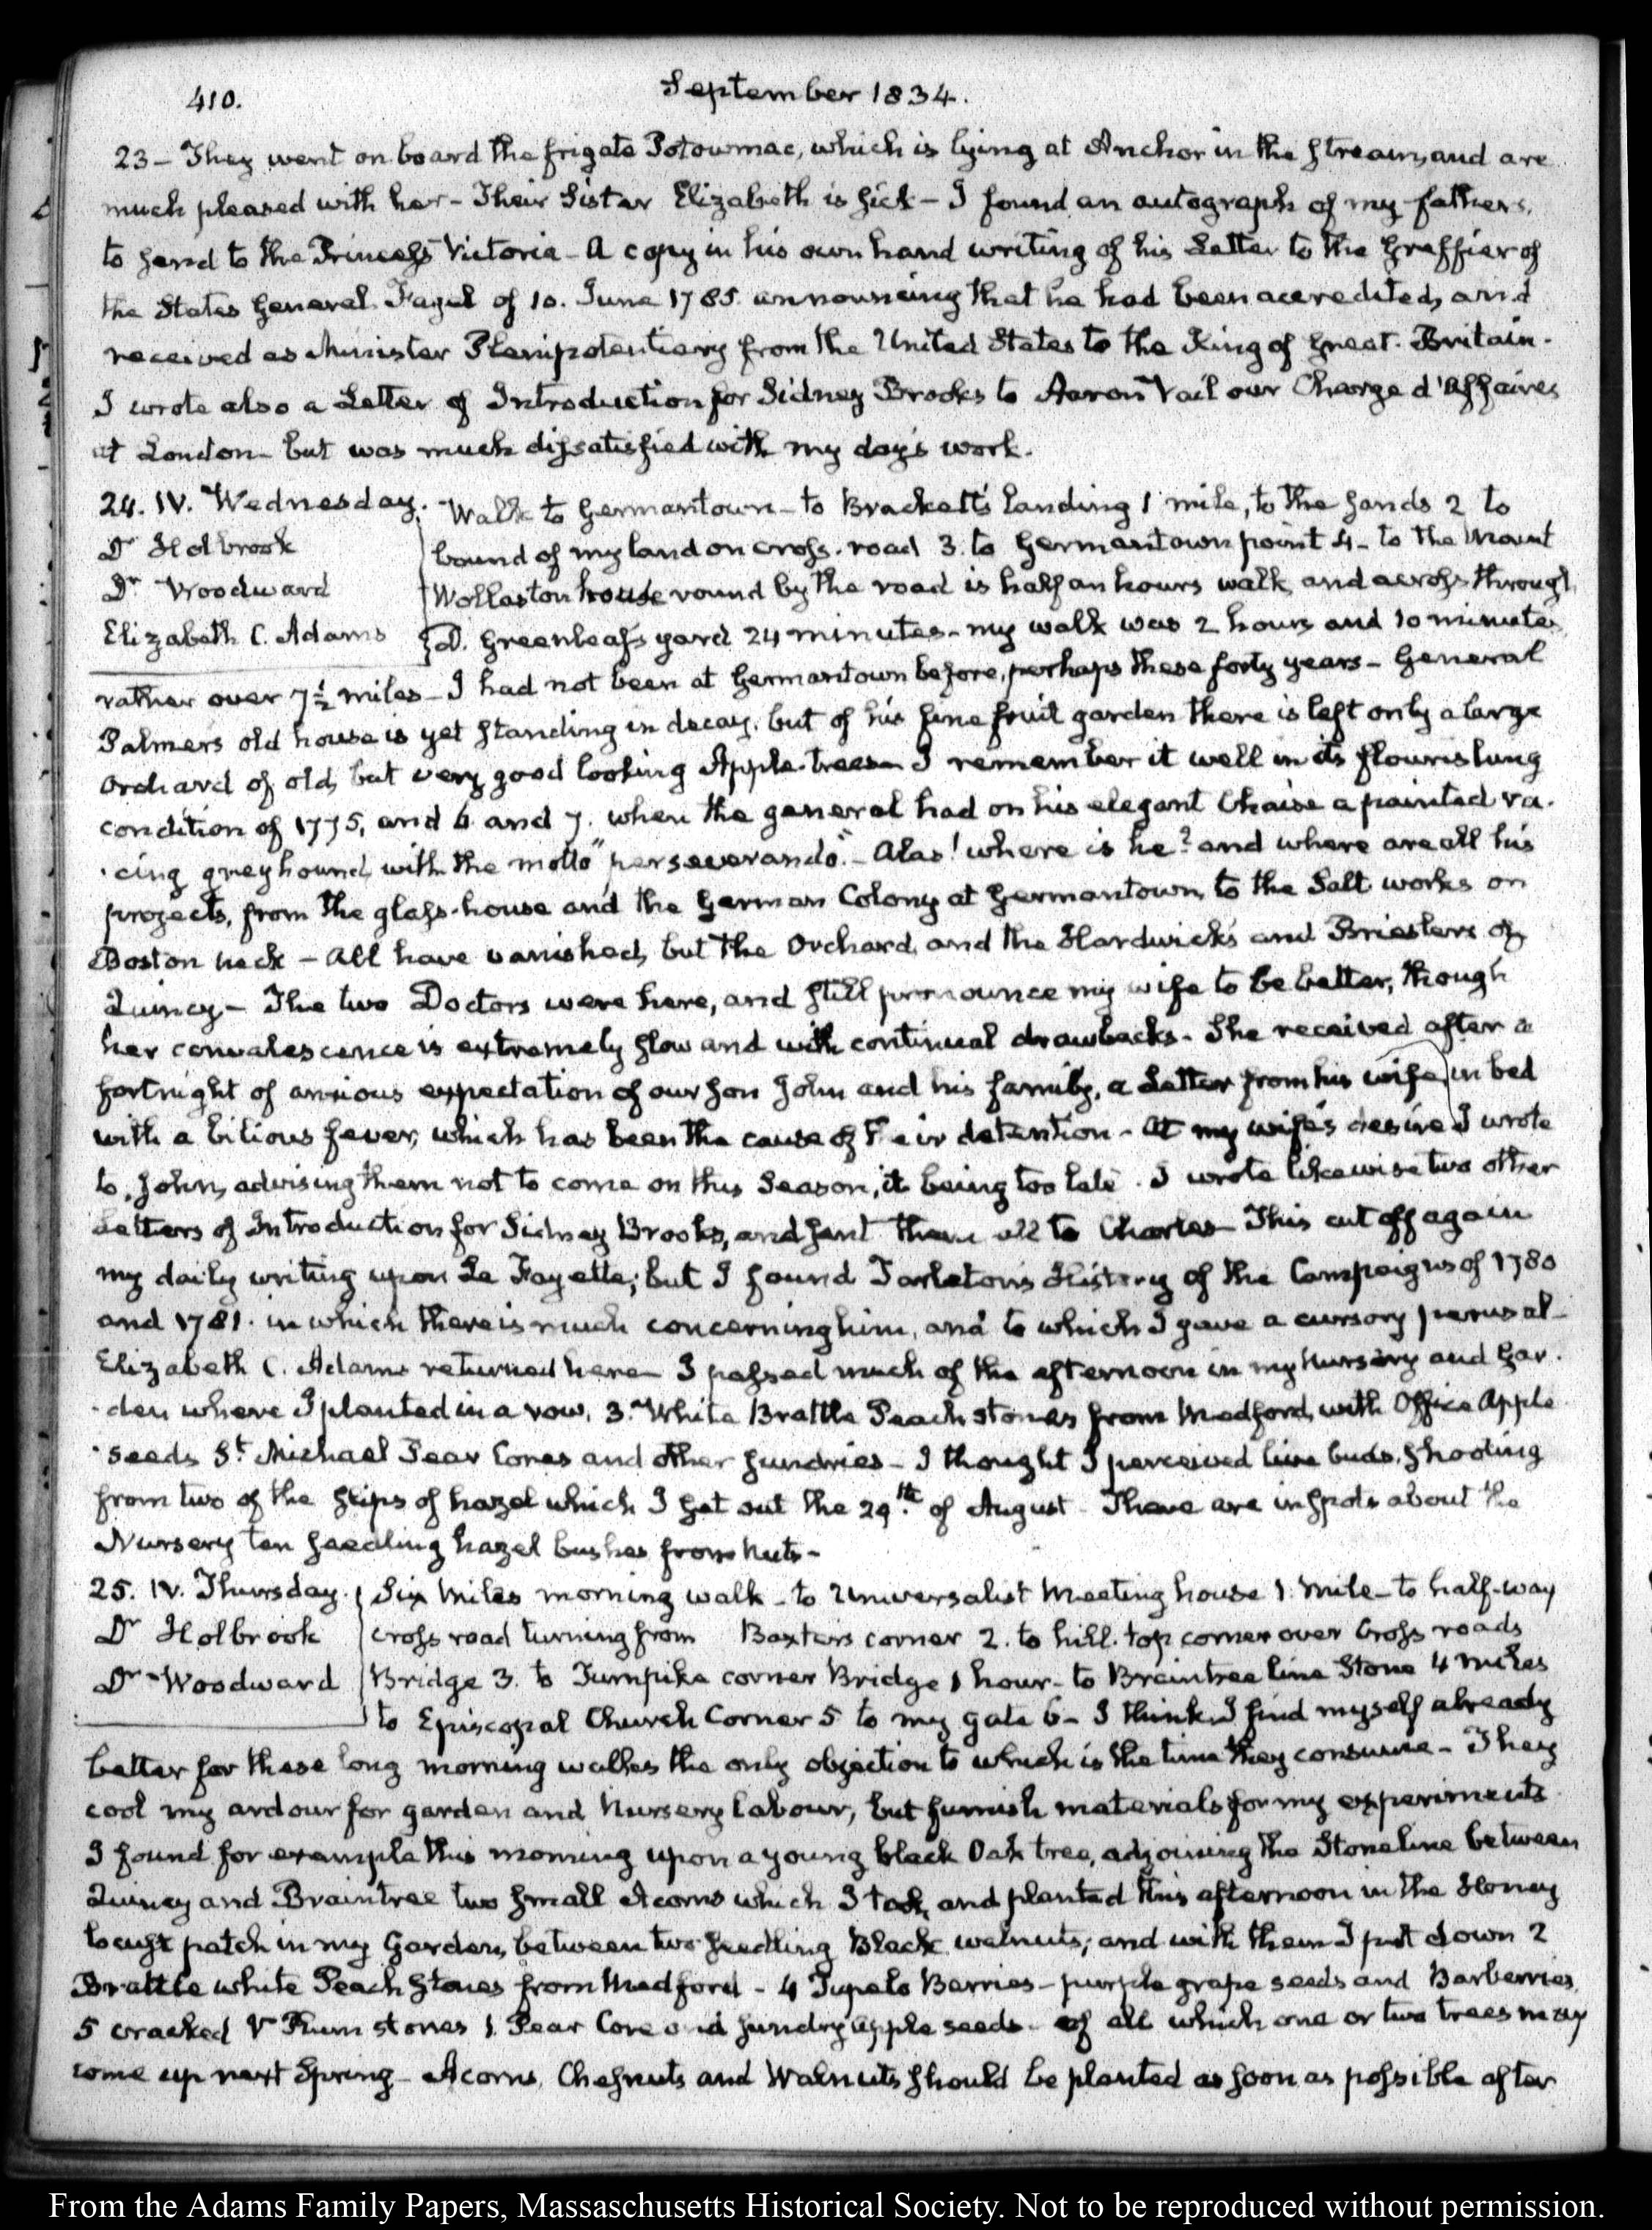 410.
September 1834.
23 – They went on board the frigate Potowmac, which is lying at Anchor in the stream, and are
much pleased with her – Their Sister Elizabeth is sick – I found an autograph of my fathers,
to send to the Princess Victoria – A copy in his own hand writing of his Letter to the Greffier of
the States General Fagel of 10. June 1785 announcing that he had been accredited, and
received as Minister Plenipotentiary from the United States to the King of Great. Britain.
I wrote also a Letter of Introduction for Sidney Brooks to Aaron Vail our Charge d'Affaires
at London – but was much dissatisfied with my day's work.
24. IV. Wednesday.
Dr Holbrook
Dr Woodward
Elizabeth C. Adams
Walk to Germantown – to Brackett's landing 1 mile, to the sands 2 to
bound of my land on cross-road 3. to Germantown point 4 – to the Mount
Wollaston house round by the road is half an hours walk, and across through
D. Greenleaf's yard 24 minutes – my walk was 2 hours and 10 minutes,
rather over 7½ miles – I had not been at Germantown before, perhaps these forty years – General
Palmers old house is yet standing in decay, but of his fine fruit garden there is left only a large
Orchard of old, but very good looking Apple-trees – I remember it well in its flourishing
condition of 1775, and 6 and 7. when the general had on his elegant Chaise a painted ra-
-cing greyhound, with the motto "perseverando." – Alas! where is he? and where are all his
projects, from the glass-house and the German Colony at Germantown, to the Salt works on
Boston neck – All have vanished, but the Orchard, and the Hardwicks and Briesters of
Quincy – The two Doctors were here, and still pronounce my wife to be better, though
her convalescence is extremely slow and with continual drawbacks – She received after a
fortnight of anxious expectation of our son John and his family, a Letter from his wife, in bed
with a bilious fever, which has been the cause of their detention – At my wife's desire I wrote
to John, advising them not to come on this Season, it being too late. I wrote likewise two other
Letters of Introduction for Sidney Brooks, and sent them all to Charles – This cut off again
my daily writing upon La Fayette; but I found Tarleton's History of the Campaigns of 1780
and 1781. in which there is much concerning him, and to which I gave a cursory perusal –
Elizabeth C. Adams returned here – I passed much of the afternoon in my Nursery and Gar-
-den where I planted in a row, 3. White Brattle Peach stones from Medford, with Office Apple
-seeds St. Michael Pear Cores and other sundries – I thought I perceived live buds, shooting
from two of the slips of hazel which I set out the 29th. of August – There are in spots about the
Nursery ten seedling hazel bushes from Nuts –
25. IV. Thursday.
Dr Holbrook
Dr Woodward
Six Miles morning walk – to Universalist Meeting house 1. Mile – to half-way
cross road turning from Baxter's corner 2. to hill-top corner over Cross roads
Bridge 3. to Turnpike corner Bridge 1 hour – to Braintree line Stone 4 miles
to Episcopal Church Corner 5 to my gate 6 – I think I find myself already
better for these long morning walks the only objection to which is the time they consume – They
cool my ardour for garden and Nursery labour, but furnish materials for my experiments
I found for example this morning upon a young black Oak tree, adjoining the Stone line between
Quincy and Braintree two small Acorns which I took, and planted this afternoon in the Honey
locust patch in my Garden, between two seedling Black walnuts; and with them I put down 2
Brattle white Peach stones from Medford – 4 Tupelo Berries – purple grape seeds and Barberries,
5 cracked Plum stones 1. Pear Core and sundry apple seeds – of all which one or two trees may
come up next Spring – Acorns, Chesnuts and Walnuts should be planted as soon as possible after
From the Adams Family Papers, Massachusetts Historical Society. Not to be reproduced without permission.